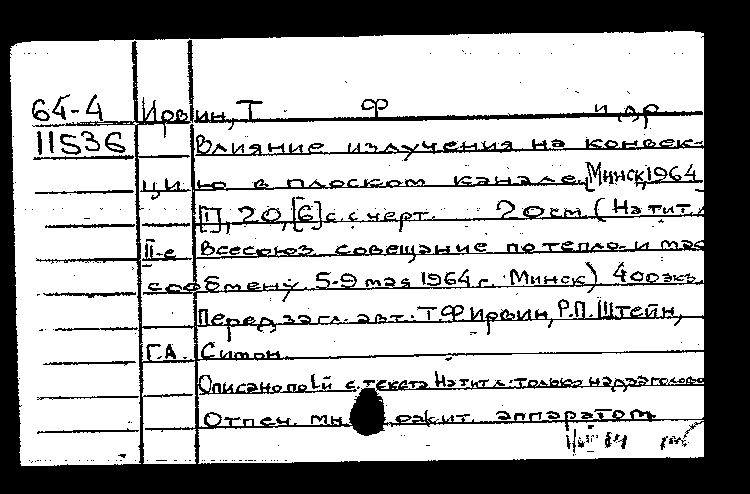 64-4 Ирвин, Т Ф и др
11536 Влияние излучения на конвек-
цию в плоском канале [Минск, 1964
[1], 20, [6] с. с черт. 20 см. (На тит. л
II-е Всесоюз. совещание по тепло- и мас
сообмену 5-9 мая 1964 г. Минск) 400 экз.
Перед загл. авт.: Т.Ф. Ирвин, Р.П. Штейн,
Г.А. Симон.
Описано по 1-й с. текста На тит л.: только надзаголово
Отпеч. мн ожит. аппаратом